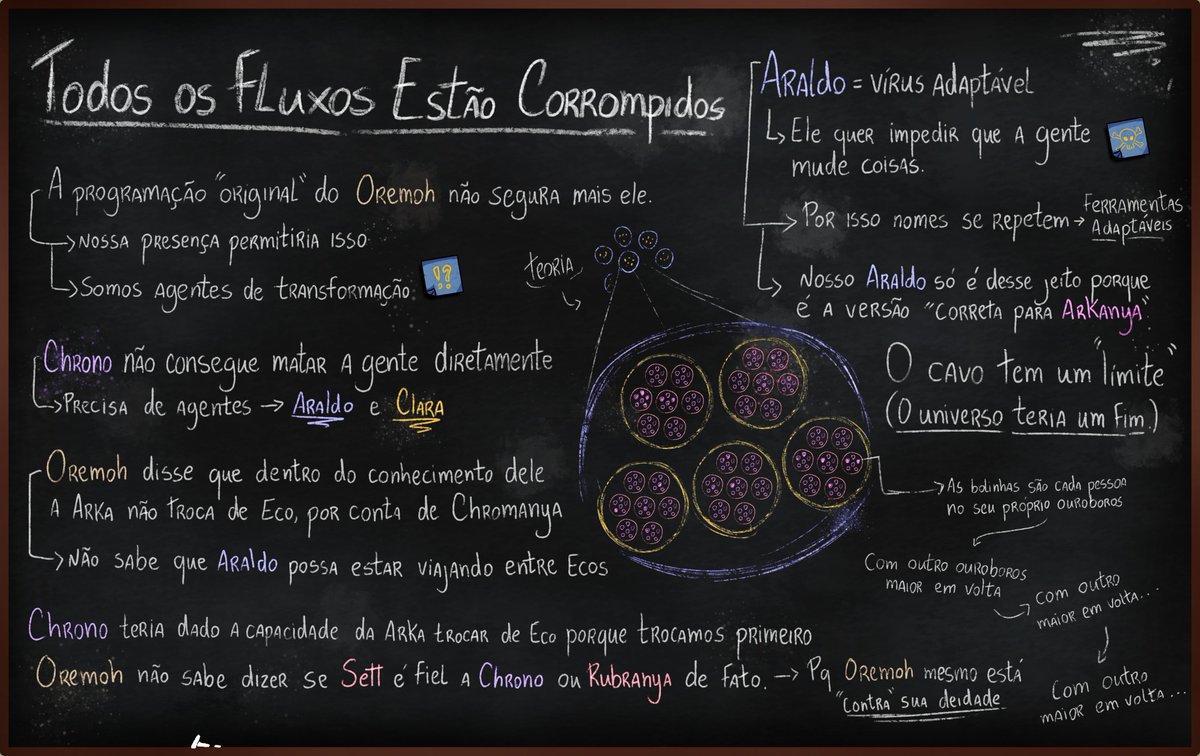 Todos os Fluxos Estão Corrompidos
A programação "original" do Oremoh não segura mais ele.
Nossa presença permitiria isso
Somos agentes de transformação
!?
Chrono não consegue matar a gente diretamente
Precisa de agentes → Araldo e Clara
Oremoh disse que dentro do conhecimento dele
a Arka não troca de Eco, por conta de Chromanya
Não sabe que Araldo possa estar viajando entre Ecos
Chrono teria dado a capacidade da Arka trocar de Eco porque trocamos primeiro
Oremoh não sabe dizer se Sett é fiel a Chrono ou Rubranya de fato. → Pq Oremoh mesmo está
"contra" sua deidade
teoria
Araldo = vírus adaptável
Ele quer impedir que a gente
mude coisas.
Por isso nomes se repetem → Ferramentas
Adaptáveis
Nosso Araldo só é desse jeito porque
é a versão "correta para Arkanya"
O cavo tem um "límite"
(O universo teria um fim.)
As bolinhas são cada pessoa
no seu próprio ouroboros
Com outro ouroboros
maior em volta
com outro
maior em volta...
Com outro
maior em volta...